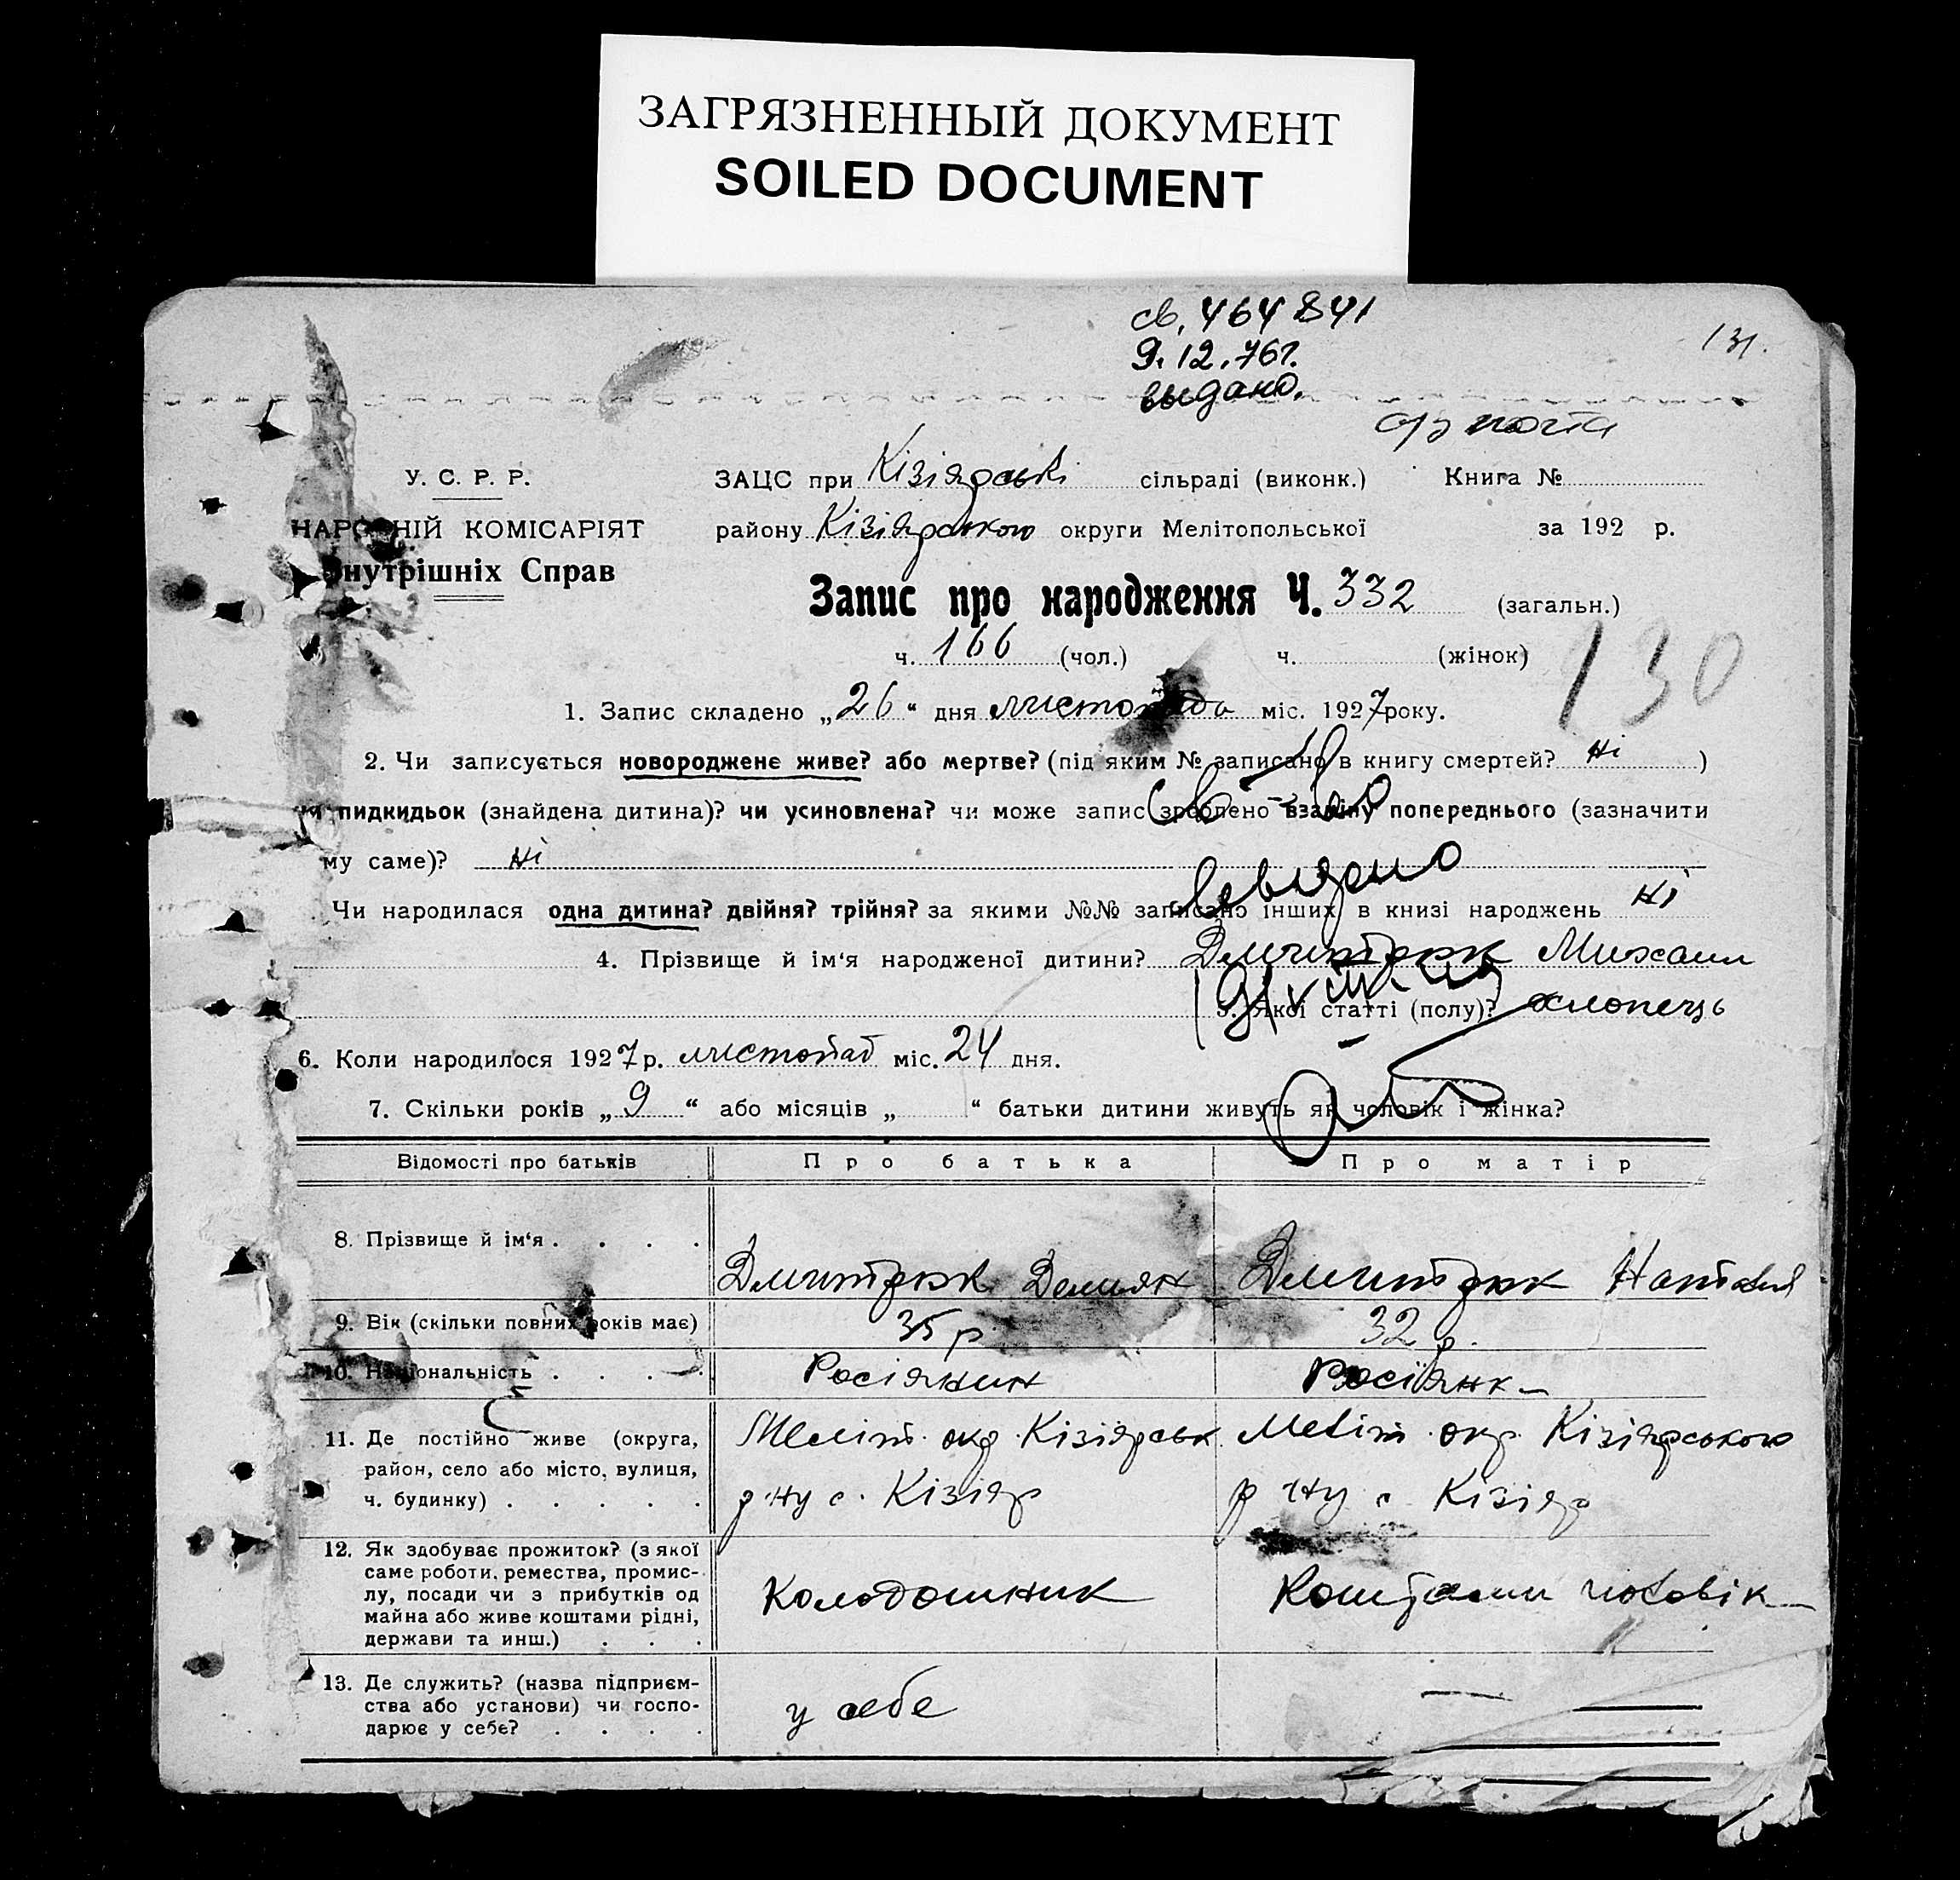 ЗАГРЯЗНЕННЫЙ ДОКУМЕНТ
SOILED DOCUMENT
св. 464841
9.12.76г.
выдано.
131.
У. С. Р. Р.
НАРОДНІЙ КОМІСАРІЯТ
Внутрішніх Справ
ЗАЦС при Кізіярські сільраді (виконк.) Книга №
району Кізіярського округи Мелітопольської за 192 р.
Запис про народження Ч. 332 (загальн.)
ч. 166 (чол.) ч. (жінок)
130
1. Запис складено „26“ дня листопада міс. 1927 року.
2. Чи записується новороджене живе? або мертве? (під яким № записано в книгу смертей? ні )
чи пидкидьок (знайдена дитина)? чи усиновлена? чи може запис зроблено взаміну попереднього (зазначити
му саме)? ні
Св-во
выдано
Чи народилася одна дитина? двійня? трійня? за якими №№ записано інших в книзі народжень ні
4. Прізвище й ім‘я народженої дитини? Дмитрюк Михаил
5. Якої статті (полу)? хлопець
6. Коли народилося 1927 р. листопад міс. 24 дня.
7. Скільки років „9“ або місяців „ “ батьки дитини живуть як чоловік і жінка?
Відомості про батьків Про батька Про матір
8. Прізвище й ім‘я . . . . Дмитрюк Демьян Дмитрюк Наталія
9. Вік (скільки повних років має) 35 р. 32 р.
10. Національність . . . . Росіянин Росіянк
11. Де постійно живе (округа, район, село або місто, вулиця, ч. будинку) . . . . .
Меліт. окр. Кізіярськ
р-ну с. Кізіяр
Меліт. окр. Кізіярського
р-ну с Кізіяр
12. Як здобуває прожиток? (з якої
саме роботи, ремества, промис-
лу, посади чи з прибутків од
майна або живе коштами рідні,
держави та инш.) . . .
Колодошник
Коштами чоловік
13. Де служить? (назва підприєм-
ства або установи) чи госпо-
дарює у себе? . . . .
у себе
—